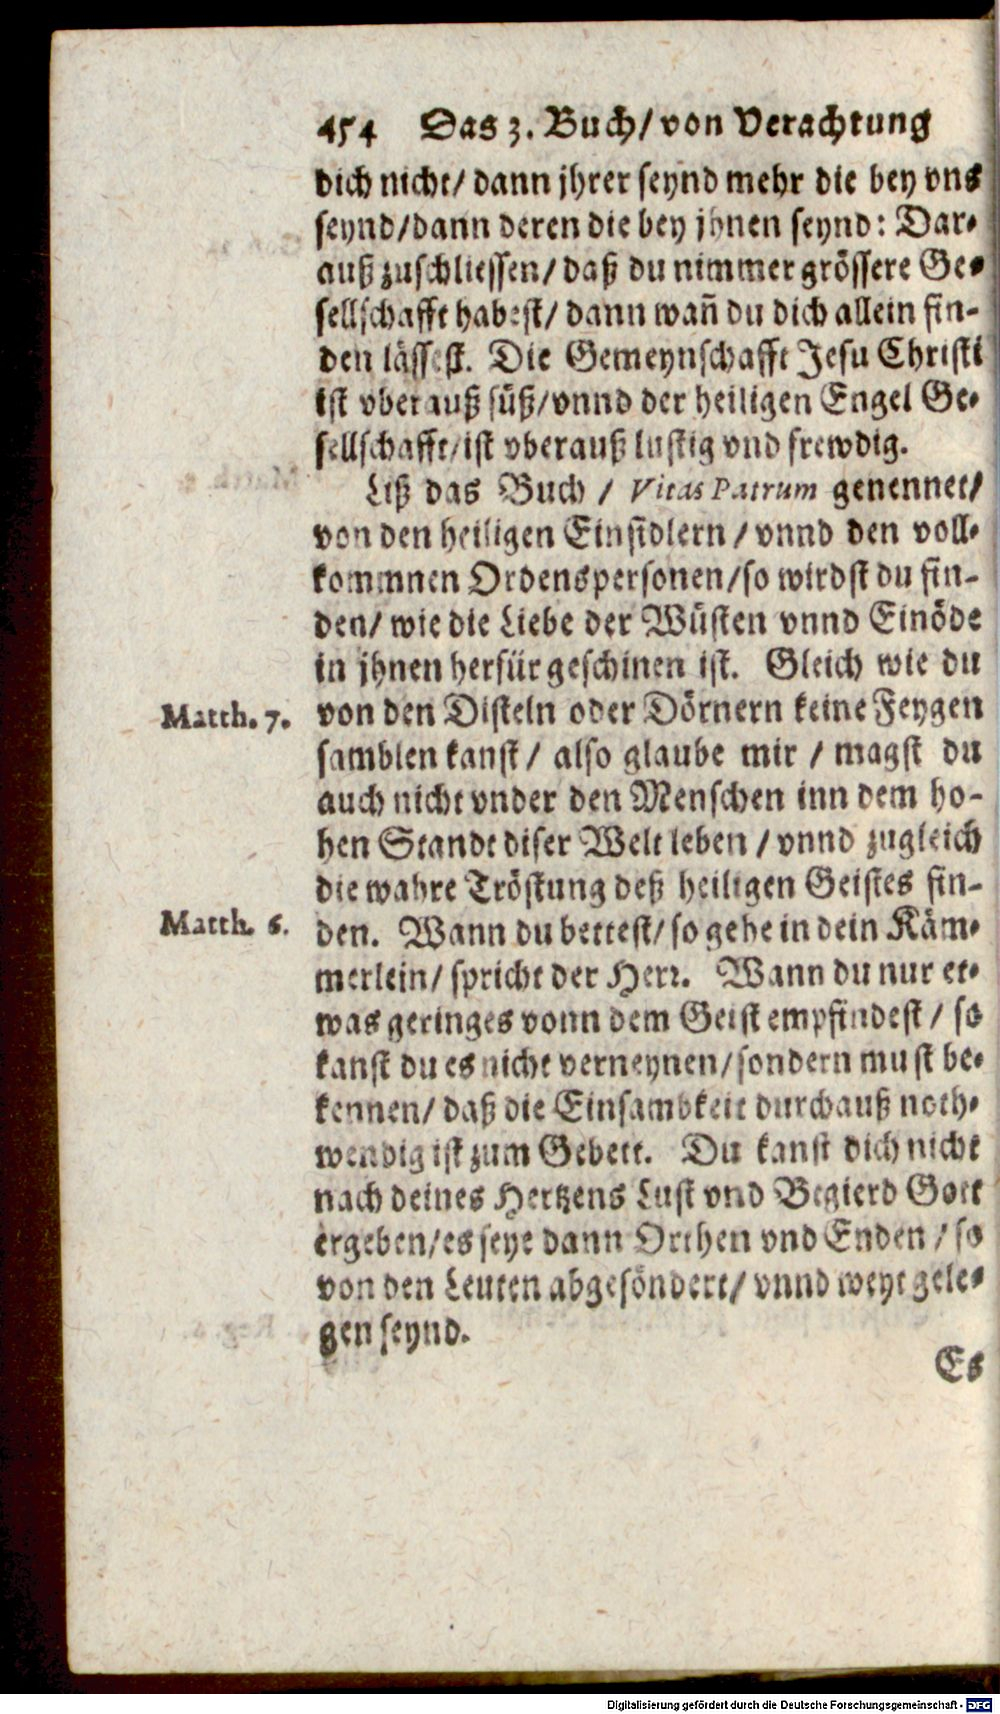 454 Das 3. Buch/von Verachtung
dich nicht/ dann jhrer seynd mehr die bey vns
seynd/dann deren die bey jhnen seynd: Dar-
auß zuschliessen/ daß du nimmer grössere Ge-
sellschafft habest/ dann wañ du dich allein fin-
den lässest. Die Gemeynschafft Jesu Christi
ist vberauß süß/vnnd der heiligen Engel Ge-
sellschafft/ist vberauß lustig vnd frewdig.
Liß das Buch / Vitas Patrum genennet/
von den heiligen Einsidlern / vnnd den voll-
kommnen Ordenspersonen/so wirdst du fin-
den/ wie die Liebe der Wüsten vnnd Einöde
in jhnen herfür geschinen ist. Gleich wie du
Matth. 7. von den Disteln oder Dörnern keine Feygen
samblen kanst / also glaube mir / magst du
auch nicht vnder den Menschen inn dem ho-
hen Standt diser Welt leben / vnnd zugleich
die wahre Tröstung deß heiligen Geistes fin-
Matth. 6. den. Wann du bettest/ so gehe in dein Käm-
merlein/ spricht der Herr. Wann du nur et-
was geringes vonn dem Geist empfindest / so
kanst du es nicht verneynen/sondern must be-
kennen/ daß die Einsambkeit durchauß noth-
wendig ist zum Gebett. Du kanst dich nicht
nach deines Hertzens Lust vnd Begierd Gott
ergeben/es seye dann Orthen vnd Enden / so
von den Leuten abgesöndert/ vnnd weyt gele-
gen seynd.
Es
Digitalisierung gefördert durch die Deutsche Forschungsgemeinschaft - DFG